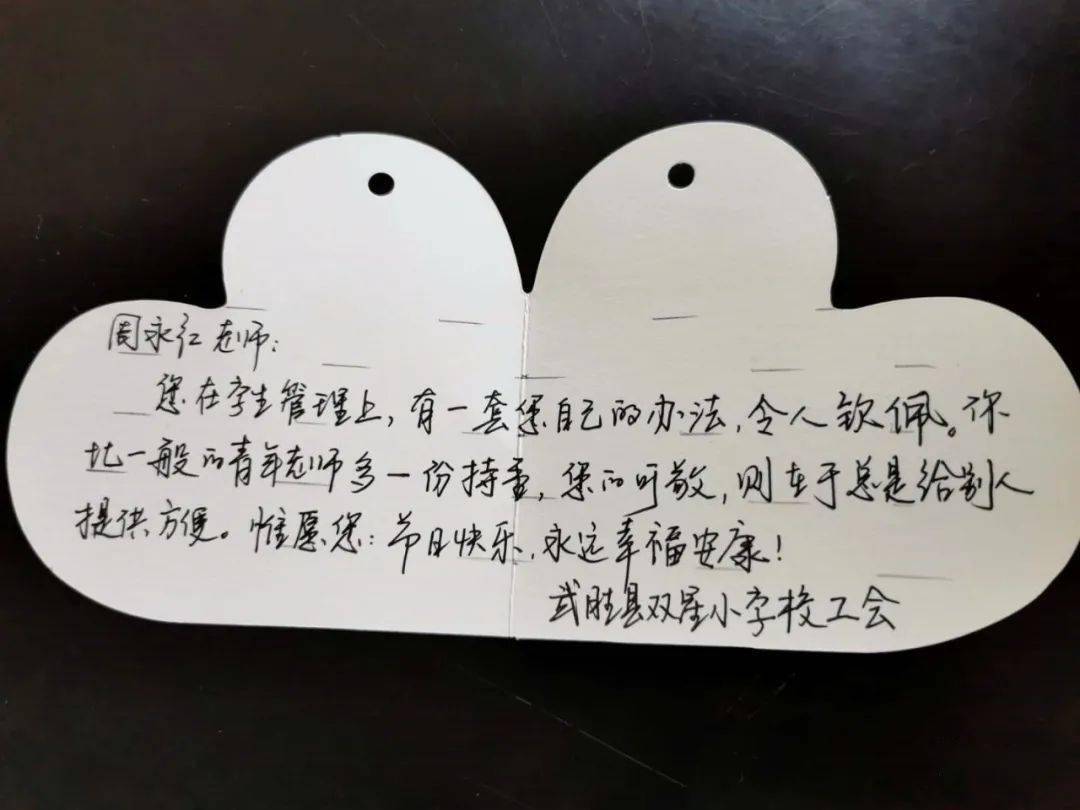 周永红老师:
您在学生管理上,有一套您自己的办法,令人钦佩。你
比一般的青年老师多一份持重,您的可敬,则在于总是给别人
提供方便。惟愿您:节日快乐,永远幸福安康!
武胜县双星小学校工会